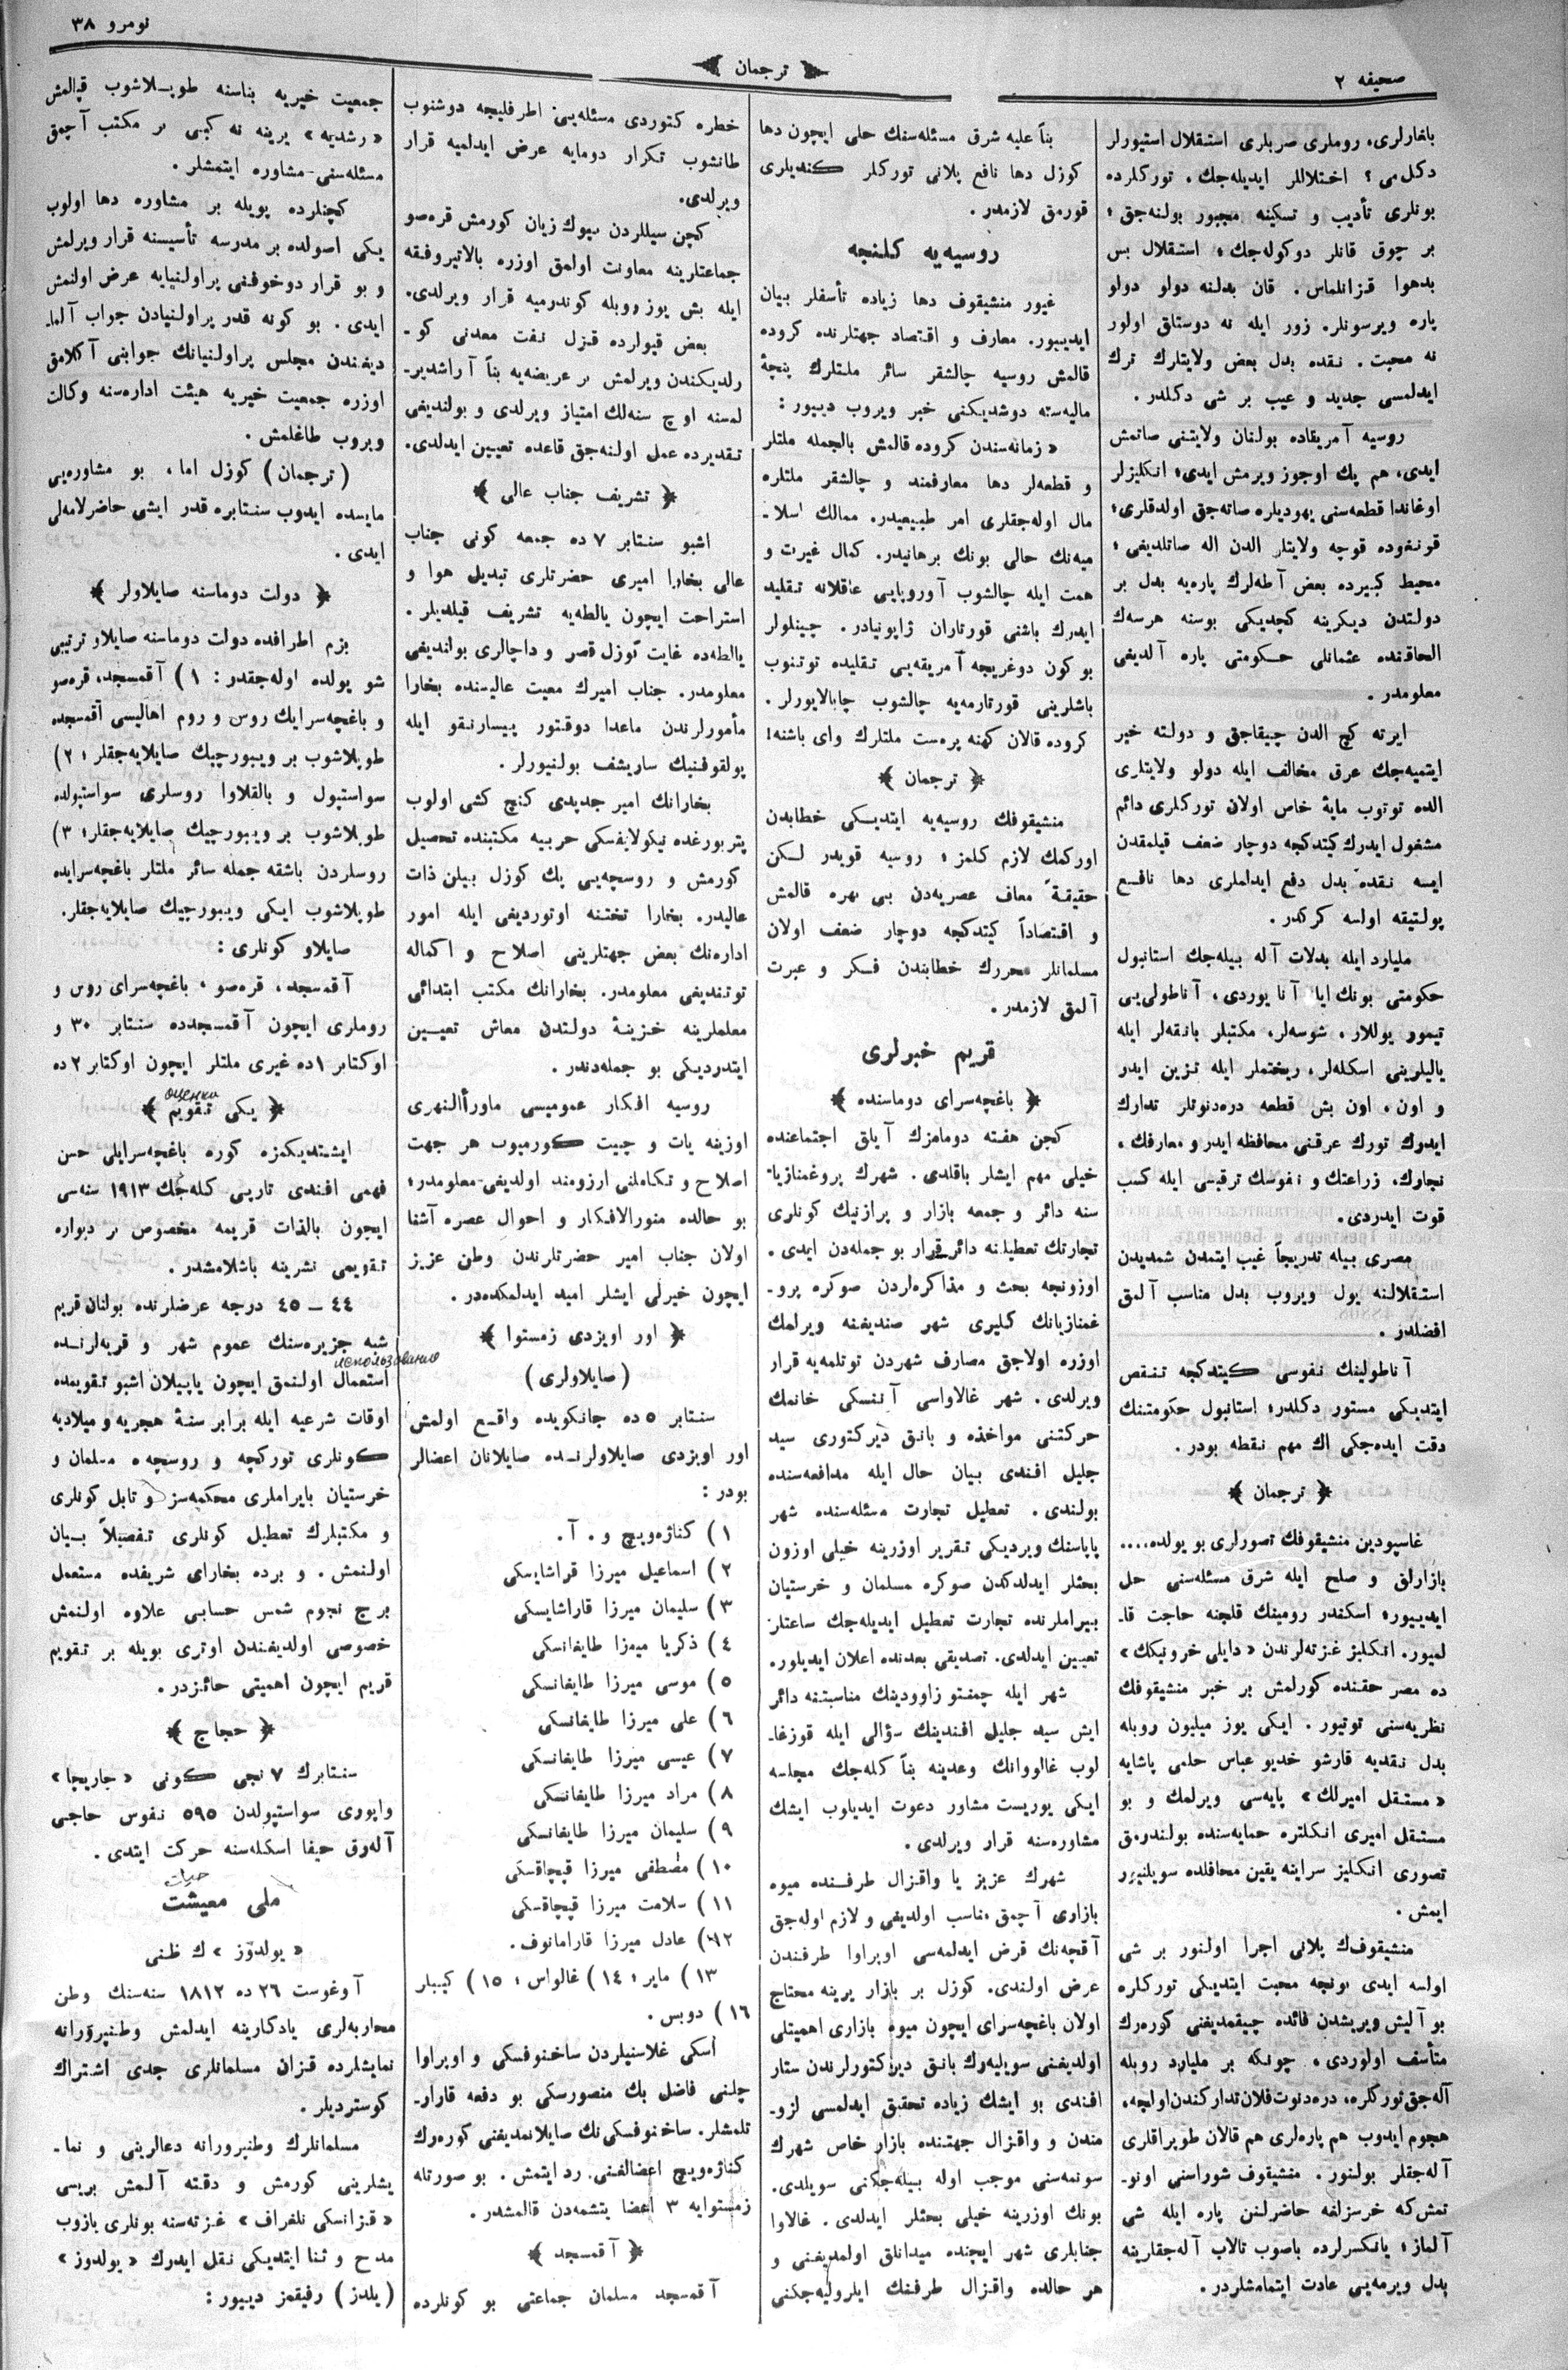 صحیفه ٢
ترجمان
نومرو ٣٨
باغارلری، روملری صربلری استقلال استیورلر
دکل‌می ؟ اختلاللر ایدیله‌جك. تورکلرده
بونلری تأدیب و تسکینه مجبور بولنه‌جق ؛
بر چوق قانلر دوکوله‌جك ؛ استقلال بس
بدهوا قزانلماس. قان بدلنه دولو دولو
پاره ویرسونلر. زور ایله نه دوستلق اولور
نه محبت. نقده بدل بعض ولایتلرك ترك
ایدلمسی جدید و عیب بر شی دکلدر.
روسیه آمریقاده بولنان ولایتنی صاتمش
ایدی، هم پك اوجوز ویرمش ایدی؛ انکلیزلر
اوغاندا قطعه‌سنی یهودیلره صاته‌جق اولدقلری؛
قونغوده قوجه ولایتلر الدن اله صاتلدیغی ؛
محیط کبیرده بعض آطه‌لرك پاره‌یه بدل بر
دولتدن دیکرینه کچدیکی بوسنه هرسه‌ك
الحاقنده عثمانلی حکومتی پاره آلدیغی
معلومدر.
ایرته کچ الدن چیقاجق و دولته خیر
ایتمیه‌جك عرق مخالف ایله دولو ولایتلری
الده توتوب مایهٔ خاص اولان تورکلری دائم
مشغول ایدرك کیتدکجه دوچار ضعف قیلمقدن
ایسه نقده بدل دفع ایداملری دها نافع
پولتیقه اولسه کرکدر.
ملیارد ایله بدلات آله بیله‌جك استانبول
حکومتی بونك ایله آنا یوردی، آناطولی‌یی
تیمور یوللار، شوسه‌لر، مکتبلر بانقه‌لر ایله
یالیلرینی اسکله‌لر، ریختملر ایله تزین ایدر
و اون، اون بش قطعه دره‌دنوتلر تدارك
ایدرك تورك عرقنی محافظه ایدر و معارفك،
تجارك، زراعتك و نفوسك ترقیسی ایله کسب
قوت ایدردی.
مصری بیله تدریجاً غیب ایتمدن شمدیدن
استقلالنه یول ویروب بدل مناسب آلمق
افضلدر.
آناطولینك نفوسی کیتدکجه تنقص
ایتدیکی مستور دکلدر؛ استانبول حکومتنك
دقت ایده‌جکی اك مهم نقطه بودر.
﴿ ترجمان ﴾
غاسپودین منشیقوفك تصورلری بو یولده....
بازارلق و صلح ایله شرق مسئله‌سنی حل
ایدییور؛ اسکندر رومینك قلجنه حاجت قا-
لمیور. انکلیز غزته‌لرندن « دایلی خرونیکك »
ده مصر حقنده کورلمش بر خبر منشیقوفك
نظریه‌سنی توتیور. ایکی یوز میلیون روبله
بدل نقدیه قارشو خدیو عباس حلمی پاشایه
« مستقل امیرلك » پایه‌سی ویرلمك و بو
مستقل امیری انکلتره حمایه‌سنده بولندرمق
تصوری انکلیز سراینه یقین محافلده سویلنیور
ایمش.
منشیقوف‌ك پلانی اجرا اولنور بر شی
اولسه ایدی بونجه محبت ایتدیکی تورکلره
بو آلیش ویریشدن فائده چیقمدیغنی کوره‌رك
متأسف اولوردی، چونکه بر ملیارد روبله
آله‌جق تورکلره، دره‌دنوت فلان تدارکندن اولجه،
هجوم ایدوب هم پاره‌لری هم قالان طوپراقلری
آله‌جقلر بولنور. منشیقوف شوراسنی اونو-
تمش که خرسزلغه حاضرلنن پاره ایله شی
آلماز ؛ یانکسرلرده باصوب تالاب آله‌جقلرینه
بدل ویرمه‌یی عادت ایتمامشلردر.
بناً علیه شرق مسئله‌سنك حلی ایچون دها
کوزل دها نافع پلانی تورکلر کندیلری
قورمق لازمدر.
روسیه‌یه کلنجه
غیور منشیقوف دها زیاده تأسفلر بیان
ایدییور. معارف و اقتصاد جهتلرنده کروده
قالمش روسیه چالشقر سائر ملتلرك پنجهٔ
مالیه‌سنه دوشدیکنی خبر ویروب دییور :
« زمانه‌سندن کروده قالمش بالجمله ملتلر
و قطعه‌لر دها معارفمند و چالشقر ملتلره
مال اوله‌جقلری امر طبیعیدر. ممالك اسلا-
میه‌نك حالی بونك برهانیدر. کمال غیرت و
همت ایله چالشوب آوروپایی عاقلانه تقلید
ایدرك باشنی قورتاران ژاپونیادر. چینلولر
بو کون دوغریجه آمریقه‌یی تقلیده توتنوب
باشلرینی قورتارمه‌یه چالشوب چابالایورلر.
کروده قالان کهنه پرست ملتلرك وای باشنه!
﴿ ترجمان ﴾
منشیقوفك روسیه‌یه ایتدیکی خطابدن
اورکمك لازم کلمز ؛ روسیه قویدر لکن
حقیقةً معاف عصریه‌دن بی بهره قالمش
و اقتصاداً کیتدکجه دوچار ضعف اولان
مسلمانلر محررك خطابندن فکر و عبرت
آلمق لازمدر.
قریم خبرلری
﴿ باغچه‌سرای دوماسنده ﴾
کچن هفته دومامزك آیلق اجتماعنده
خیلی مهم ایشلر باقلدی. شهرك پروغمنازیا-
سنه دائر و جمعه بازار و پرازنیك کونلری
تجارتك تعطیلنه دائر قرار بو جمله‌دن ایدی.
اوزونجه بحث و مذاکره‌لردن صوکره پرو-
غمنازیانك کلیری شهر صندیغنه ویرلمك
اوزره اولاجق مصارف شهردن توتلمه‌یه قرار
ویرلدی. شهر غالاواسی آننسکی خانمك
حرکتنی مواخذه و بانق دیرکتوری سید
جلیل افندی بیان حال ایله مدافعه‌سنده
بولندی. تعطیل تجارت مسئله‌سنده شهر
پاپاسنك ویردیکی تقریر اوزرینه خیلی اوزون
بحثلر ایدلدکدن صوکره مسلمان و خرستیان
بیراملرنده تجارت تعطیل ایدیله‌جك ساعتلر
تعیین ایدلدی. تصدیقی بعدنده اعلان ایدیلور.
شهر ایله چمنتو زاوودینك مناسبتنه دائر
ایش سید جلیل افندینك سؤالی ایله قوزغا-
لوب غالووانك وعدینه بناً کله‌جك مجلسه
ایکی یوریست مشاور دعوت ایدیلوب ایشك
مشاوره‌سنه قرار ویرلدی.
شهرك عزیز یا واقزال طرفنده میوه
بازاری آچمق مناسب اولدیغی و لازم اوله‌جق
آقچه‌نك قرض ایدلمه‌سی اوپراوا طرفندن
عرض اولندی. کوزل بر بازار یرینه محتاج
اولان باغچه‌سرای ایچون میوه بازاری اهمیتلی
اولدیغنی سویلیه‌رك بانق دیرکتورلرندن ستار
افندی بو ایشك زیاده تحقیق ایدلمسی لزو-
مندن و واقزال جهتنده بازار خاص شهرك
سونمه‌سنی موجب اوله بیله‌جکنی سویلدی.
بونك اوزرینه خیلی بحثلر ایدلدی. غالاوا
جنابلری شهر ایچنده میدانلق اولمدیغنی و
هر حالده واقزال طرفنك ایلرولیه‌جکنی
خطره کتوردی مسئله‌یی اطرفلیجه دوشنوب
طانشوب تکرار دومایه عرض ایدلمیه قرار
ویرلدی.
کچن سیللردن بیوك زیان کورمش قره‌صو
جماعتلرینه معاونت اولمق اوزره بالاتیروفقه
ایله بش یوز روبله کوندرمیه قرار ویرلدی.
بعض قیولرده قزل نفت معدنی کو-
رلدیکندن ویرلمش بر عریضه‌یه بناً آراشدیر-
لمسنه اوچ سنه‌لك امتیاز ویرلدی و بولندیغی
تقدیرده عمل اولنه‌جق قاعده تعیین ایدلدی.
﴿ تشریف جناب عالی ﴾
اشبو سنتابر ٧ ده جمعه کونی جناب
عالی بخارا امیری حضرتلری تبدیل هوا و
استراحت ایچون یالطه‌یه تشریف قیلدیلر.
یالطه‌ده غایت کوزل قصر و داچالری بولندیغی
معلومدر. جناب امیرك معیت عالیسنده بخارا
مأمورلرندن ماعدا دوقتور پیسارنقو ایله
پولقوفنیك ساریشف بولنیورلر.
بخارانك امیر جدیدی کنج کشی اولوب
پتربورغده نیکولایفسکی حربیه مکتبنده تحصیل
کورمش و روسچه‌یی پك کوزل بیلن ذات
عالیدر. بخارا تختنه اوتوردیغی ایله امور
اداره‌نك بعض جهتلرینی اصلاح و اکماله
توتندیغی معلومدر. بخارانك مکتب ابتدائی
معلملرینه خزینهٔ دولتدن معاش تعیین
ایتدردیکی بو جمله‌دندر.
روسیه افکار عمومیسی ماورأالنهری
اوزینه یات و چیت کورمیوب هر جهت
اصلاح و تکاملنی ارزومند اولدیغی معلومدر؛
بو حالده منورالافکار و احوال عصره آشنا
اولان جناب امیر حضرتلرندن وطن عزیز
ایچون خیرلی ایشلر امید ایدلمکده‌در.
﴿ اور اویزدی زمستوا ﴾
( صایلاولری )
سنتابر ٥ ده جانکویده واقع اولمش
اور اویزدی صایلاولرنده صایلانان اعضالر
بودر :
١) کناژه‌ویچ و. آ.
٢) اسماعیل میرزا قراشایسکی
٣) سلیمان میرزا قاراشایسکی
٤) ذکریا میرزا طایغانسکی
٥) موسی میرزا طایغانسکی
٦) علی میرزا طایغانسکی
٧) عیسی میرزا طایغانسکی
٨) مراد میرزا طایغانسکی
٩) سلیمان میرزا طایغانسکی
١٠) مصطفی میرزا قپچاقسکی
١١) سلامت میرزا قپچاقسکی
١٢) عادل میرزا قارامانوف.
١٣) مایر ؛ ١٤) غالواس ؛ ١٥) کیبلر
١٦) دوبس.
اسکی غلاسنیلردن ساخنوفسکی و اوپراوا
چلنی فاضل بك منصورسکی بو دفعه قارار-
تلمشلر. ساخنوفسکی‌نك صایلانمدیغنی کوره‌رك
کناژه‌ویچ اعضالغنی رد ایتمش. بو صورتله
زمستوایه ٣ اعضا یتشمه‌دن قالمشدر.
﴿ آقمسجد ﴾
آقمسجد مسلمان جماعتی بو کونلرده
جمعیت خیریه بناسنه طوپلاشوب قپالمش
« رشدیه » یرینه نه کبی بر مکتب آچمق
مسئله‌سنی مشاوره ایتمشلر.
کچنلرده بویله بر مشاوره دها اولوب
یکی اصولده بر مدرسه تأسیسنه قرار ویرلمش
و بو قرار دوخوفنی پراولنیایه عرض اولنمش
ایدی. بو کونه قدر پراولنیادن جواب آلما-
دیغندن مجلس پراولنیانك جوابنی آکلامق
اوزره جمعیت خیریه هیئت اداره‌سنه وکالت
ویروب طاغلمش.
( ترجمان ) کوزل اما، بو مشاوره‌یی
مایسده ایدوب سنتابره قدر ایشی حاضرلامه‌لی
ایدی.
﴿ دولت دوماسنه صایلاولر ﴾
بزم اطرافده دولت دوماسنه صایلاو ترتیبی
شو یولده اوله‌جقدر : ١) آقمسجد، قره‌صو
و باغچه‌سرایك روس و روم اهالیسی آقمسجده
طوپلاشوب بر ویبورچیك صایلایه‌جقلر ؛ ٢)
سواستپول و بالقلاوا روسلری سواستپولده
طوپلاشوب بر ویبورچیك صایلایه‌جقلر؛ ٣)
روسلردن باشقه جمله سائر ملتلر باغچه‌سرایده
طوپلاشوب ایکی ویبورچیك صایلایه‌جقلر.
صایلاو کونلری :
آقمسجد، قره‌صو، باغچه‌سرای روس و
روملری ایچون آقمسجدده سنتابر ٣٠ و
اوکتابر ١ ده غیری ملتلر ایچون اوکتابر ٢ ده
оценки
﴿ یکی تقویم ﴾
ایشتدیکمزه کوره باغچه‌سرایلی حسن
فهمی افندی تاریی کله‌جك ١٩١٣ سنه‌سی
ایچون بالذات قریمه مخصوص بر دیواره
تقویمی نشرینه باشلامشدر.
٤٤ – ٤٥ درجه عرضلرنده بولنان قریم
شبه جزیره‌سنك عموم شهر و قریه‌لرنده
использование
استعمال اولنمق ایچون یاپیلان اشبو تقویمده
اوقات شرعیه ایله برابر سنهٔ هجریه و میلادیه
کونلری تورکچه و روسچه، مسلمان و
خرستیان بایراملری محکمه‌سز و تابل کونلری
و مکتبلرك تعطیل کونلری تفصیلاً بیان
اولنمش. و برده بخارای شریفده مستعمل
برج نجوم شمس حسابی علاوه اولنمش
خصوصی اولدیغندن اوتری بویله بر تقویم
قریم ایچون اهمیتی حائزدر.
﴿ حجاج ﴾
سنتابرك ٧ نجی کونی « جاریجا »
واپوری سواستپولدن ٥٩٥ نفوس حاجی
آله‌رق حیفا اسکله‌سنه حرکت ایتدی.
حیات
ملی معیشت
« یولدوز » ك ظنی
آوغوست ٢٦ ده ١٨١٢ سنه‌سنك وطن
محاربه‌لری یادکارینه ایدلمش وطنپرورانه
نمایشلرده قزان مسلمانلری جدی اشتراك
کوستردیلر.
مسلمانلرك وطنپرورانه دعالرینی و نما-
یشلرینی کورمش و دقته آلمش بریسی
« قزانسکی تلغراف » غزته‌سنه بونلری یازوب
مدح و ثنا ایتدیکی نقل ایدرك « یولدوز »
( یلدز ) رفیقمز دییور :